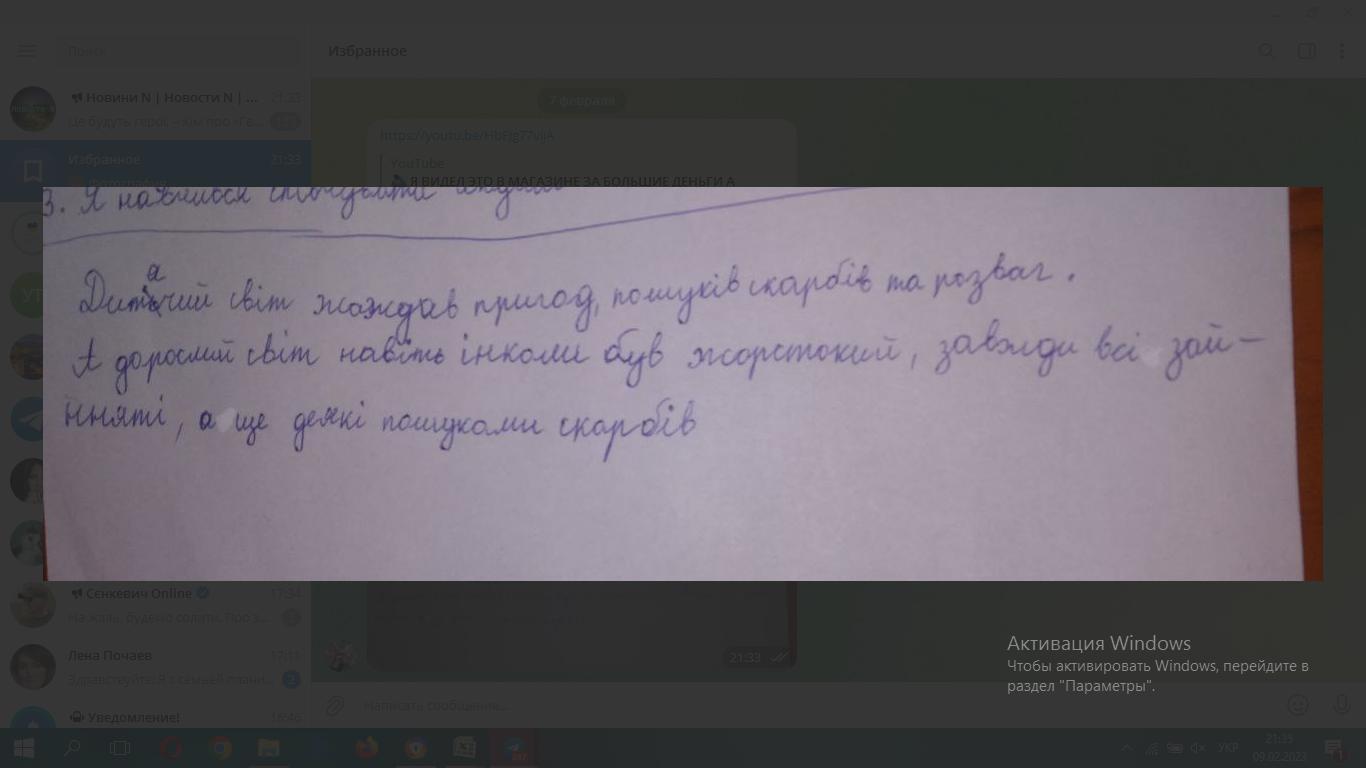 Поиск
Избранное
Новини N | Новости N | ...
21:33
Це будуть герої, – Кім про «Га...
Избранное
21:33
7 февраля
https://youtu.be/HbEJg77vijA
YouTube
Я ВИДЕЛ ЭТО В МАГАЗИНЕ ЗА БОЛЬШИЕ ДЕНЬГИ А
3. Я
Дитячий світ жаждав пригод, пошуків скарбів та розваг.
А дорослий світ навіть інколи був жорстокий, завжди всі зай-
нняті, а ще деякі пошуками скарбів
Сєнкевич Online
17:34
На жаль, будемо солити. Про з...
Лена Почаев
17:11
Здравствуйте!Я с семьей плани...
Уведомление!
16:46
21:33
Написать сообщение...
Активация Windows
Чтобы активировать Windows, перейдите в
раздел "Параметры".
УКР
21:35
09.02.2023